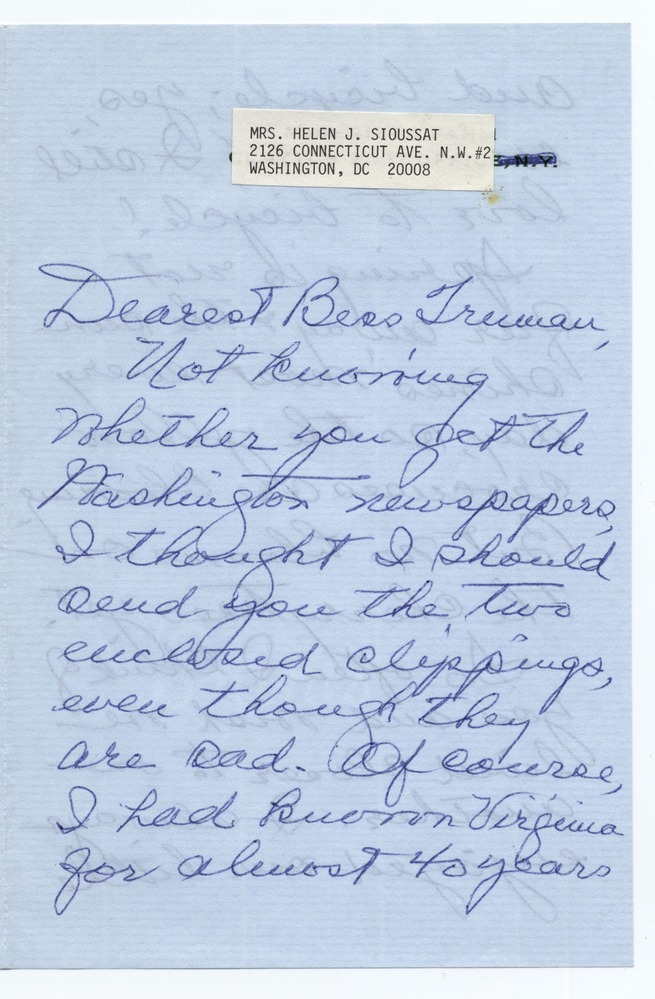 MRS. HELEN J. SIOUSSAT
2126 CONNECTICUT AVE. N.W.#2
WASHINGTON, DC 20008
N.Y.
Dearest Bess Truman,
Not knowing
whether you get the
Washington newspapers,
I thought I should
send you the two
enclosed clippings,
even though they
are sad. Of course,
I had known Virginia
for almost 40 years